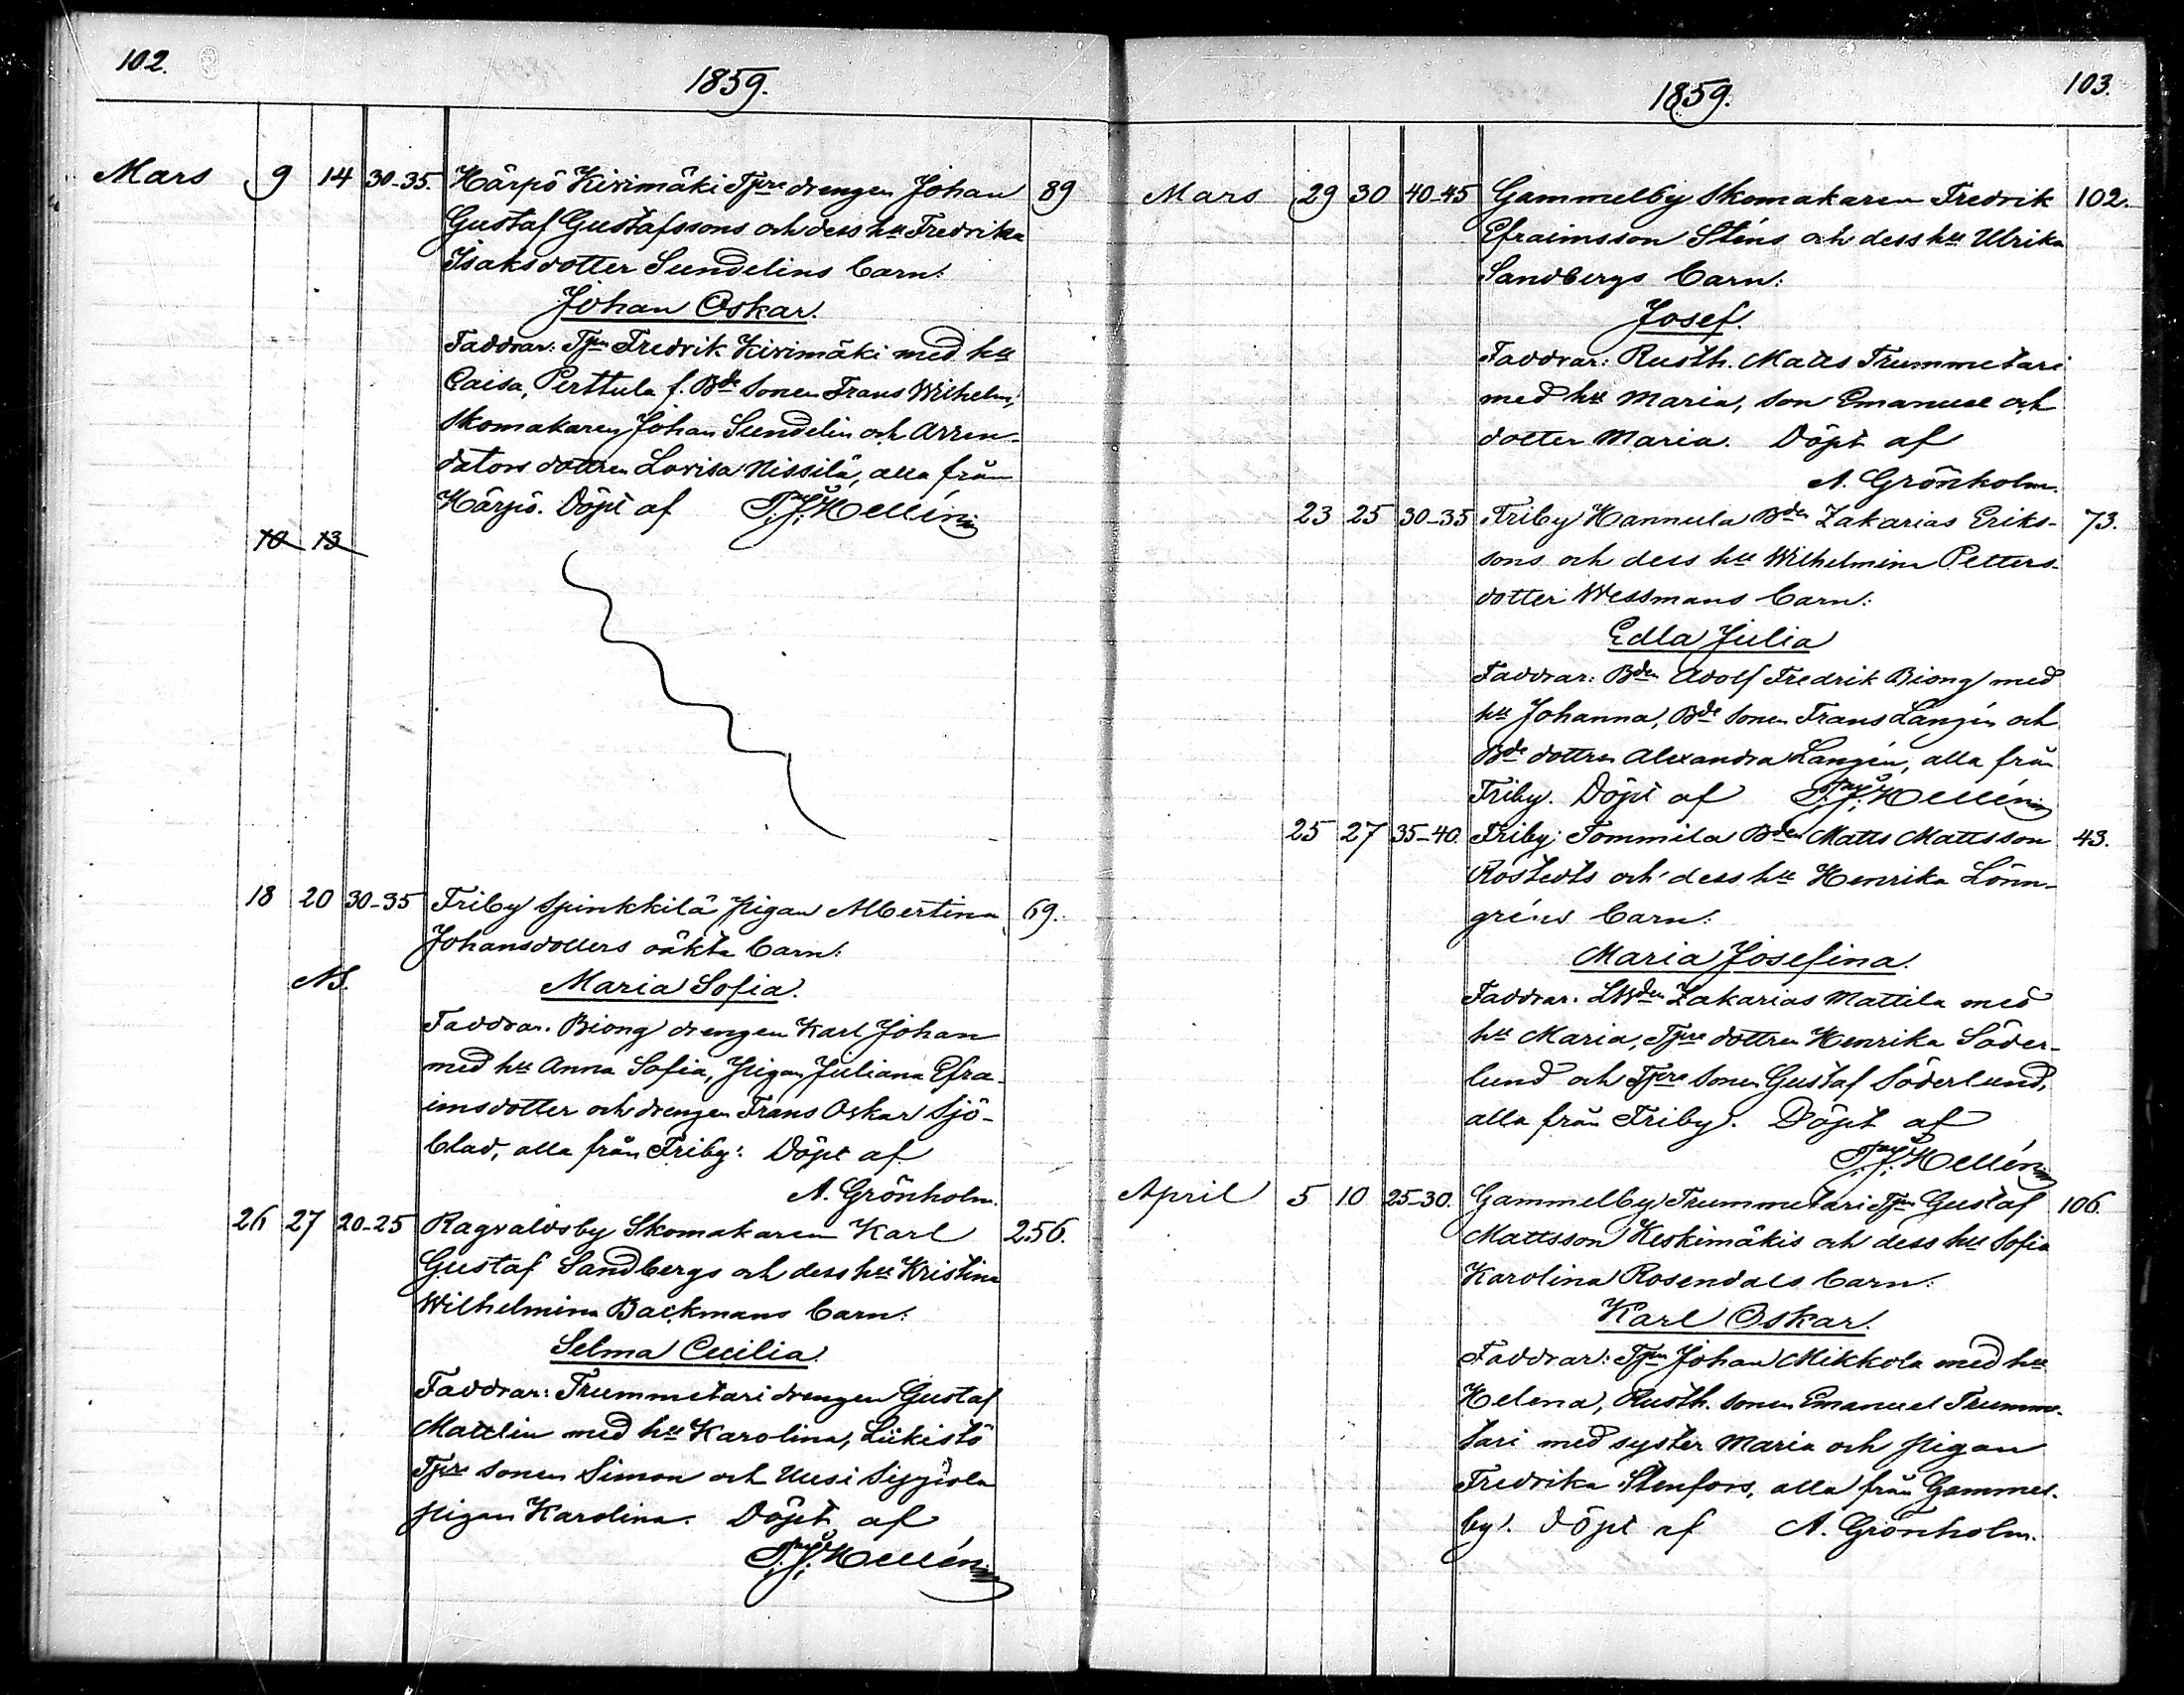 102.
1859.
Mars 9 14 30-35. Härpö Kivimäki Tpre drengen Johan 89
Gustaf Gustafssons och dess hu Fredrika
Isaksdotter Sundelins barn:
Johan Oskar.
Faddrar: Tpn Fredrik Kivimäki med hu
Caisa, Perttula f. Bde sonen Frans Wilhelm,
Skomakaren Johan Sundelin och Arren-
dators dottren Lovisa Nissilä, alla från
Härpö. Döpt af T. J. Hellén
10 13
18 20 30-35 Friby Spinkkilä pigan Albertina 69.
Johansdotters oäkta barn:
NB. Maria Sofia.
Faddrar. Biong drengen Karl Johan
med hu Anna Sofia, Pigan Juliana Efra-
imsdotter och drengen Frans Oskar Sjö-
blad, alla från Friby: Döpt af
A. Grönholm.
26 27 20-25 Ragvaldsby Skomakaren Karl 256.
Gustaf Sandbergs och dess hu Kristina
Wilhelmina Backmans barn:
Selma Cecilia.
Faddrar: Trummetari drengen Gustaf
Mattlin med hu Karolina, Liikistö
Tpre sonen Simon och Uusi
pigan Karolina. Döpt af
T. J. Hellén
1859.
103.
Mars 29 30 40-45 Gammelby Skomakaren Fredrik 102.
Efraimsson Sténs och dess hu Ulrika
Sandbergs barn:
Josef.
Faddrar: Rusth. Matts Trummetari
med hu Maria, son Emanuel och
dotter Maria. Döpt af
A. Grönholm.
23 25 30-35 Friby Hannula Bden Zakarias Eriks- 73.
sons och dess hu Wilhelmina Petters-
dotter Wessmans barn:
Edla Julia
Faddrar: Bden Adolf Fredrik Biong med
hu Johanna, Bde sonen Frans Langén och
Bde dottren Alexandra Langén, alla från
Friby. Döpt af T. J. Hellén
25 27 35-40. Friby Tommila Bden Matts Mattsson 43.
Rostedts och dess hu Henrika Lönn-
gréns barn:
Maria Josefina.
Faddrar. LBden Zakarias Mattila med
hu Maria, Tpre dottren Henrika Söder-
lund och Tpre sonen Gustaf Söderlund,
alla från Friby. Döpt af
T. J. Hellén
April 5 10 25-30. Gammelby Trummetari Tpn Gustaf 106.
Mattsson Keskimäkis och dess hu Sofia
Karolina Rosendals barn:
Karl Oskar.
Faddrar: Tpn Johan Mikkola med hu
Helena, Rusth. sonen Emanuel Trumme-
tari med syster Maria och pigan
Fredrika Stenfors, alla från Gammel-
by. Döpt af A. Grönholm.